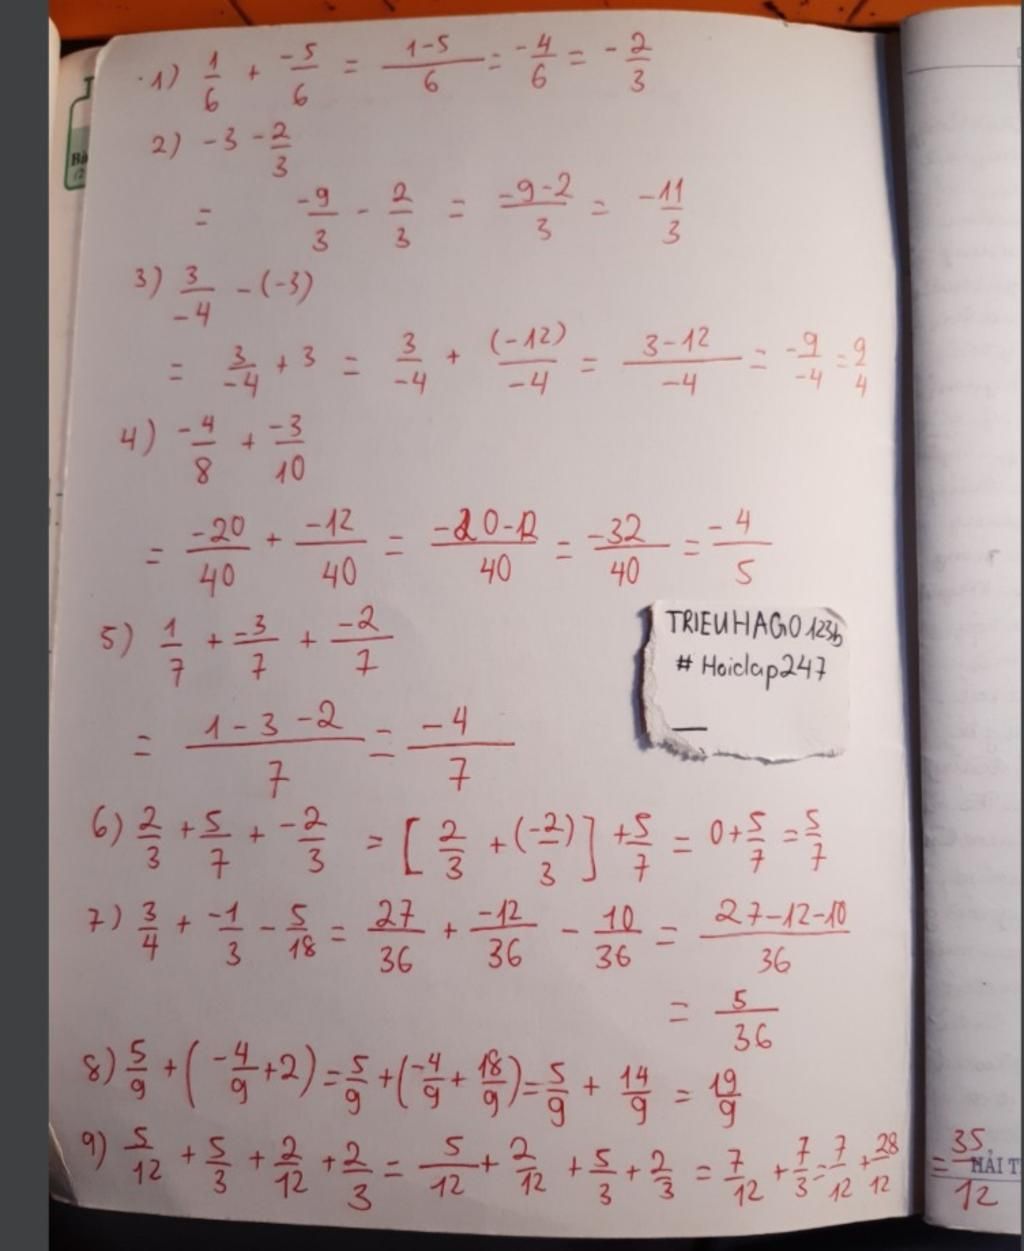 1) 1/6 + -5/6 = 1-5/6 = -4/6 = -2/3
2) -3 - 2/3
= -9/3 - 2/3 = -9-2/3 = -11/3
3) 3/-4 - (-3)
= 3/-4 + 3 = 3/-4 + (-12)/-4 = 3-12/-4 = -9/-4 = 9/4
4) -4/8 + -3/10
= -20/40 + -12/40 = -20-12/40 = -32/40 = -4/5
5) 1/7 + -3/7 + -2/7
TRIEUHAGO123b
# Hoiclap247
= 1-3-2/7 = -4/7
6) 2/3 + 5/7 + -2/3 = [2/3 + (-2/3)] + 5/7 = 0 + 5/7 = 5/7
7) 3/4 + -1/3 - 5/18 = 27/36 + -12/36 - 10/36 = 27-12-10/36
= 5/36
8) 5/9 + (-4/9 + 2) = 5/9 + (-4/9 + 18/9) = 5/9 + 14/9 = 19/9
9) 5/12 + 5/3 + 2/12 + 2/3 = 5/12 + 2/12 + 5/3 + 2/3 = 7/12 + 7/3 = 7/12 + 28/12 = 35/12
HẢI T